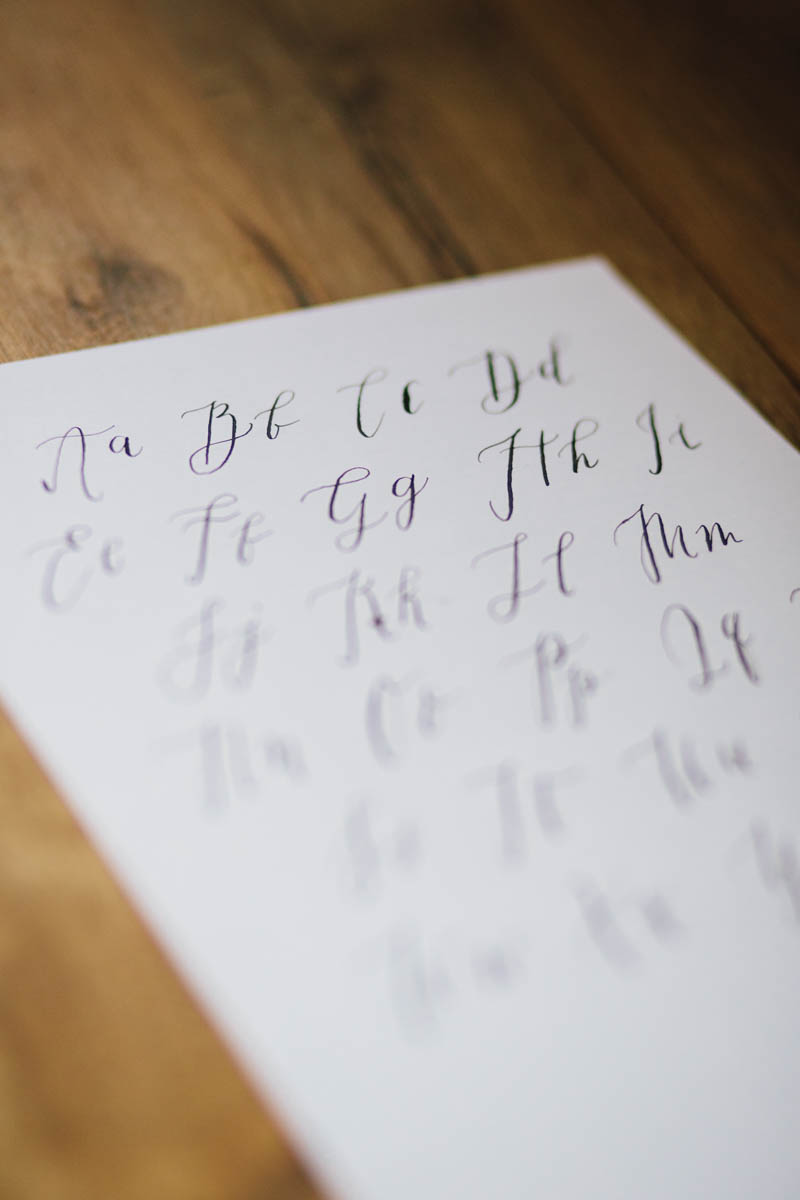 Aa Bb Cc Dd
Ee Ff Gg Hh Ii
Jj Kk Ll Mm
Nn Oo Pp Qq
Tt Uu